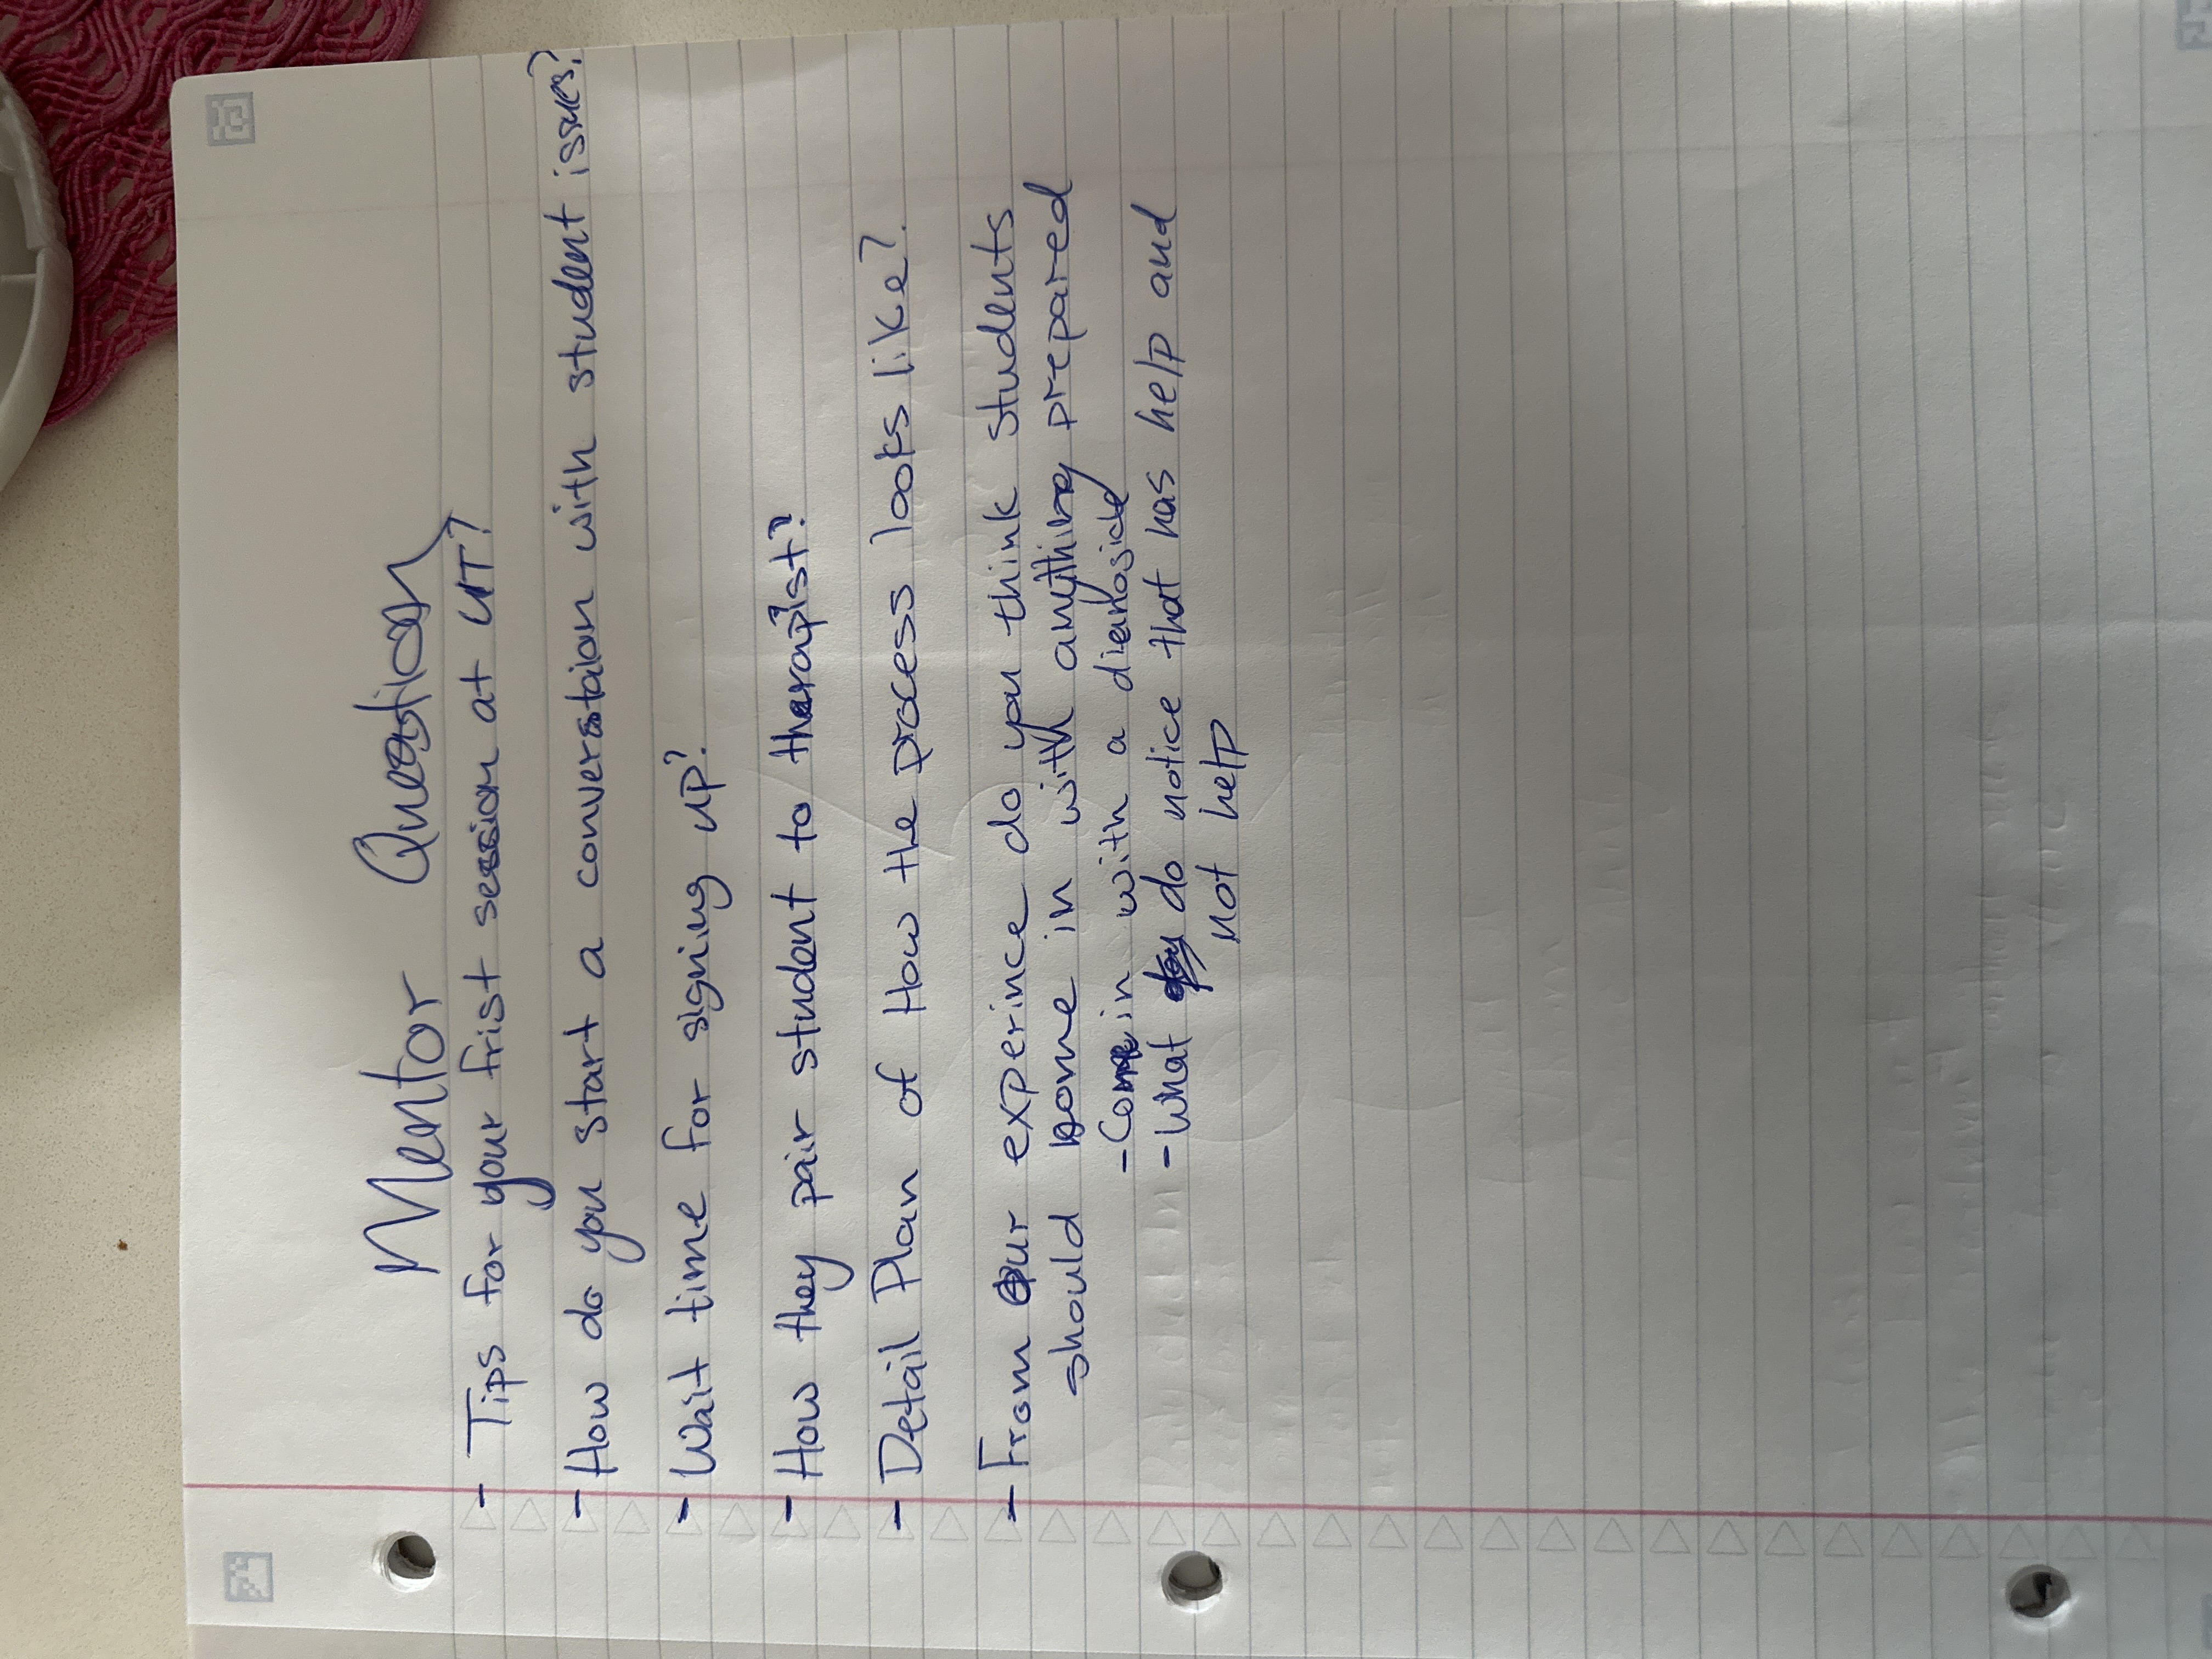 Mentor Question
- Tips for your frist session at UT?
- How do you start a converstaion with student issues?
- Wait time for signing up?
- How they pair student to therapist?
- Detail Plan of How the process looks like?
- From our experince do you think students
should come in with anything prepared
- Come in with a dienoside
- What do notice that has help and
not help